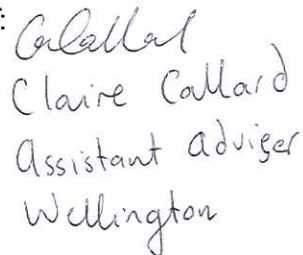 Claire Callard
Assistant adviser
Wellington